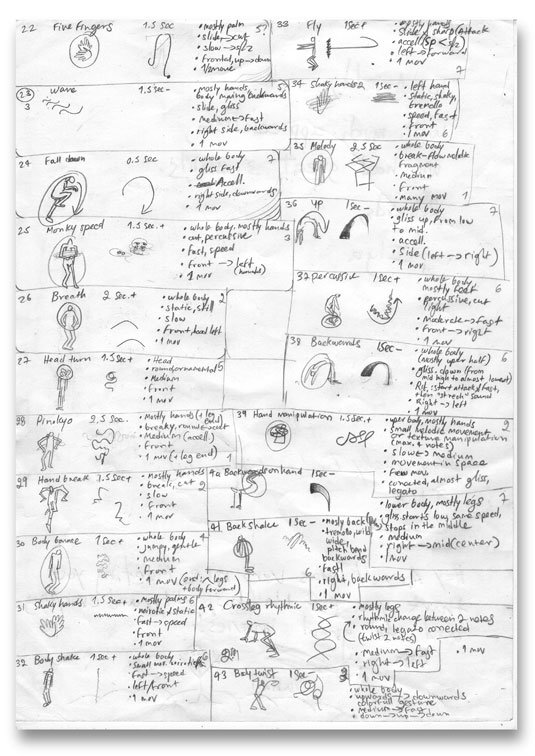 22 Five fingers 1.5 sec
• mostly palm
• slide, → cut
• slow → 
• frontal, up → down
• 1/2 move
5
(23) Wave 1.5 sec –
3
• mostly hands,
body moving backwards
• slide, gliss
• medium → fast
• right side, backwards
• 1 mov
5
24 Fall down 0.5 sec
• whole body
• gliss fast
Accell.
• right side, downwards
• 1 mov
7
25 Monky speed 1.5 sec. +
• whole body, mostly hands
• cut, percussive
• fast, speed
• front → left
(hands)
• 1 mov
3
26 Breath 2 sec. +
• whole body
• static, still
• slow
• front, head left
• 1 mov
2
27 Head turn 1.5 sec +
• Head
• round
• Medium
• Front
• 1 mov
5
28 Pinokyo 2.5 sec.
• Mostly hands (+ leg
end)
• breaky, round → cut
• Medium (accell.)
• Front
• 1 mov (+ leg end)
1
29 Hand break 1.5 sec +
• Mostly hands
• break, cut
• slow
• Front
• 1 mov
2
30 Body bounce 1 sec +
• whole body
• jumpy, gentle
• medium
• front
• 1 mov (end: legs
+ body forward)
4
6
31 Shaky hands 1.5 sec +
• mostly palms
• & static
• fast → speed
• front
• 1 mov
6
32 Body shake 1 sec +
• whole body
• small
• Fast → speed
• left/front
• 1 mov
6
33 Fly 1 sec +
• mostly hands
• slide & sharp (Attack
• accell
• left → forward
• 1 mov
7
34 Shaky hands 2 1 sec –
• left hand
• static, shaky,
tremello
• speed, fast
• front
• 1 mov
6
35 Melody 2.5 sec
• whole body
• break-flow melodic
fragment
• medium
• Front
• many mov
1
36 up 1 sec –
• whole body
• gliss up, from low
to mid.
• accell.
• Side (left → right)
• 1 mov
7
37 percussive 1 sec +
• whole body
mostly feet
• percussive, cut
light
• Moderate → fast
• front → right
• 1 mov
6
38 Backwards 1 sec –
• whole body
(mostly upper half)
• gliss. down (from
mid high to almost lowest)
• Rit, start attack & fast,
then "strech" sound
• Right → left
• 1 mov
6
39 Hand manipulation 1.5 sec. +
• upper body, mostly hands
• small melodic movement
or texture manipulation
(max. 4 notes)
• slow → medium
• movement in space
• Few mov
• conected, almost gliss,
legato
2
40 Backwards on hand 1 sec –
• lower body, mostly legs
• gliss starts low, same speed,
stops in the middle
• medium
• right → mid (center)
• 1 mov
7
41 Back shake 1 sec –
• mostly back
• tremolo, wild,
wide,
pitch bend
backwards
• fast!
• right, backwards
• 1 mov
6
42 Crossleg rhythmic 1 sec +
• mostly legs
• rhythmic change between 2 notes
• round, legato conected
(twist 2 notes)
• medium → fast
• right → left
• 1 mov
• 1 mov
43 Body twist 1 sec –
• whole body
• upwards → downwards
colorfull gesture
• Medium → fast
• down → up → down